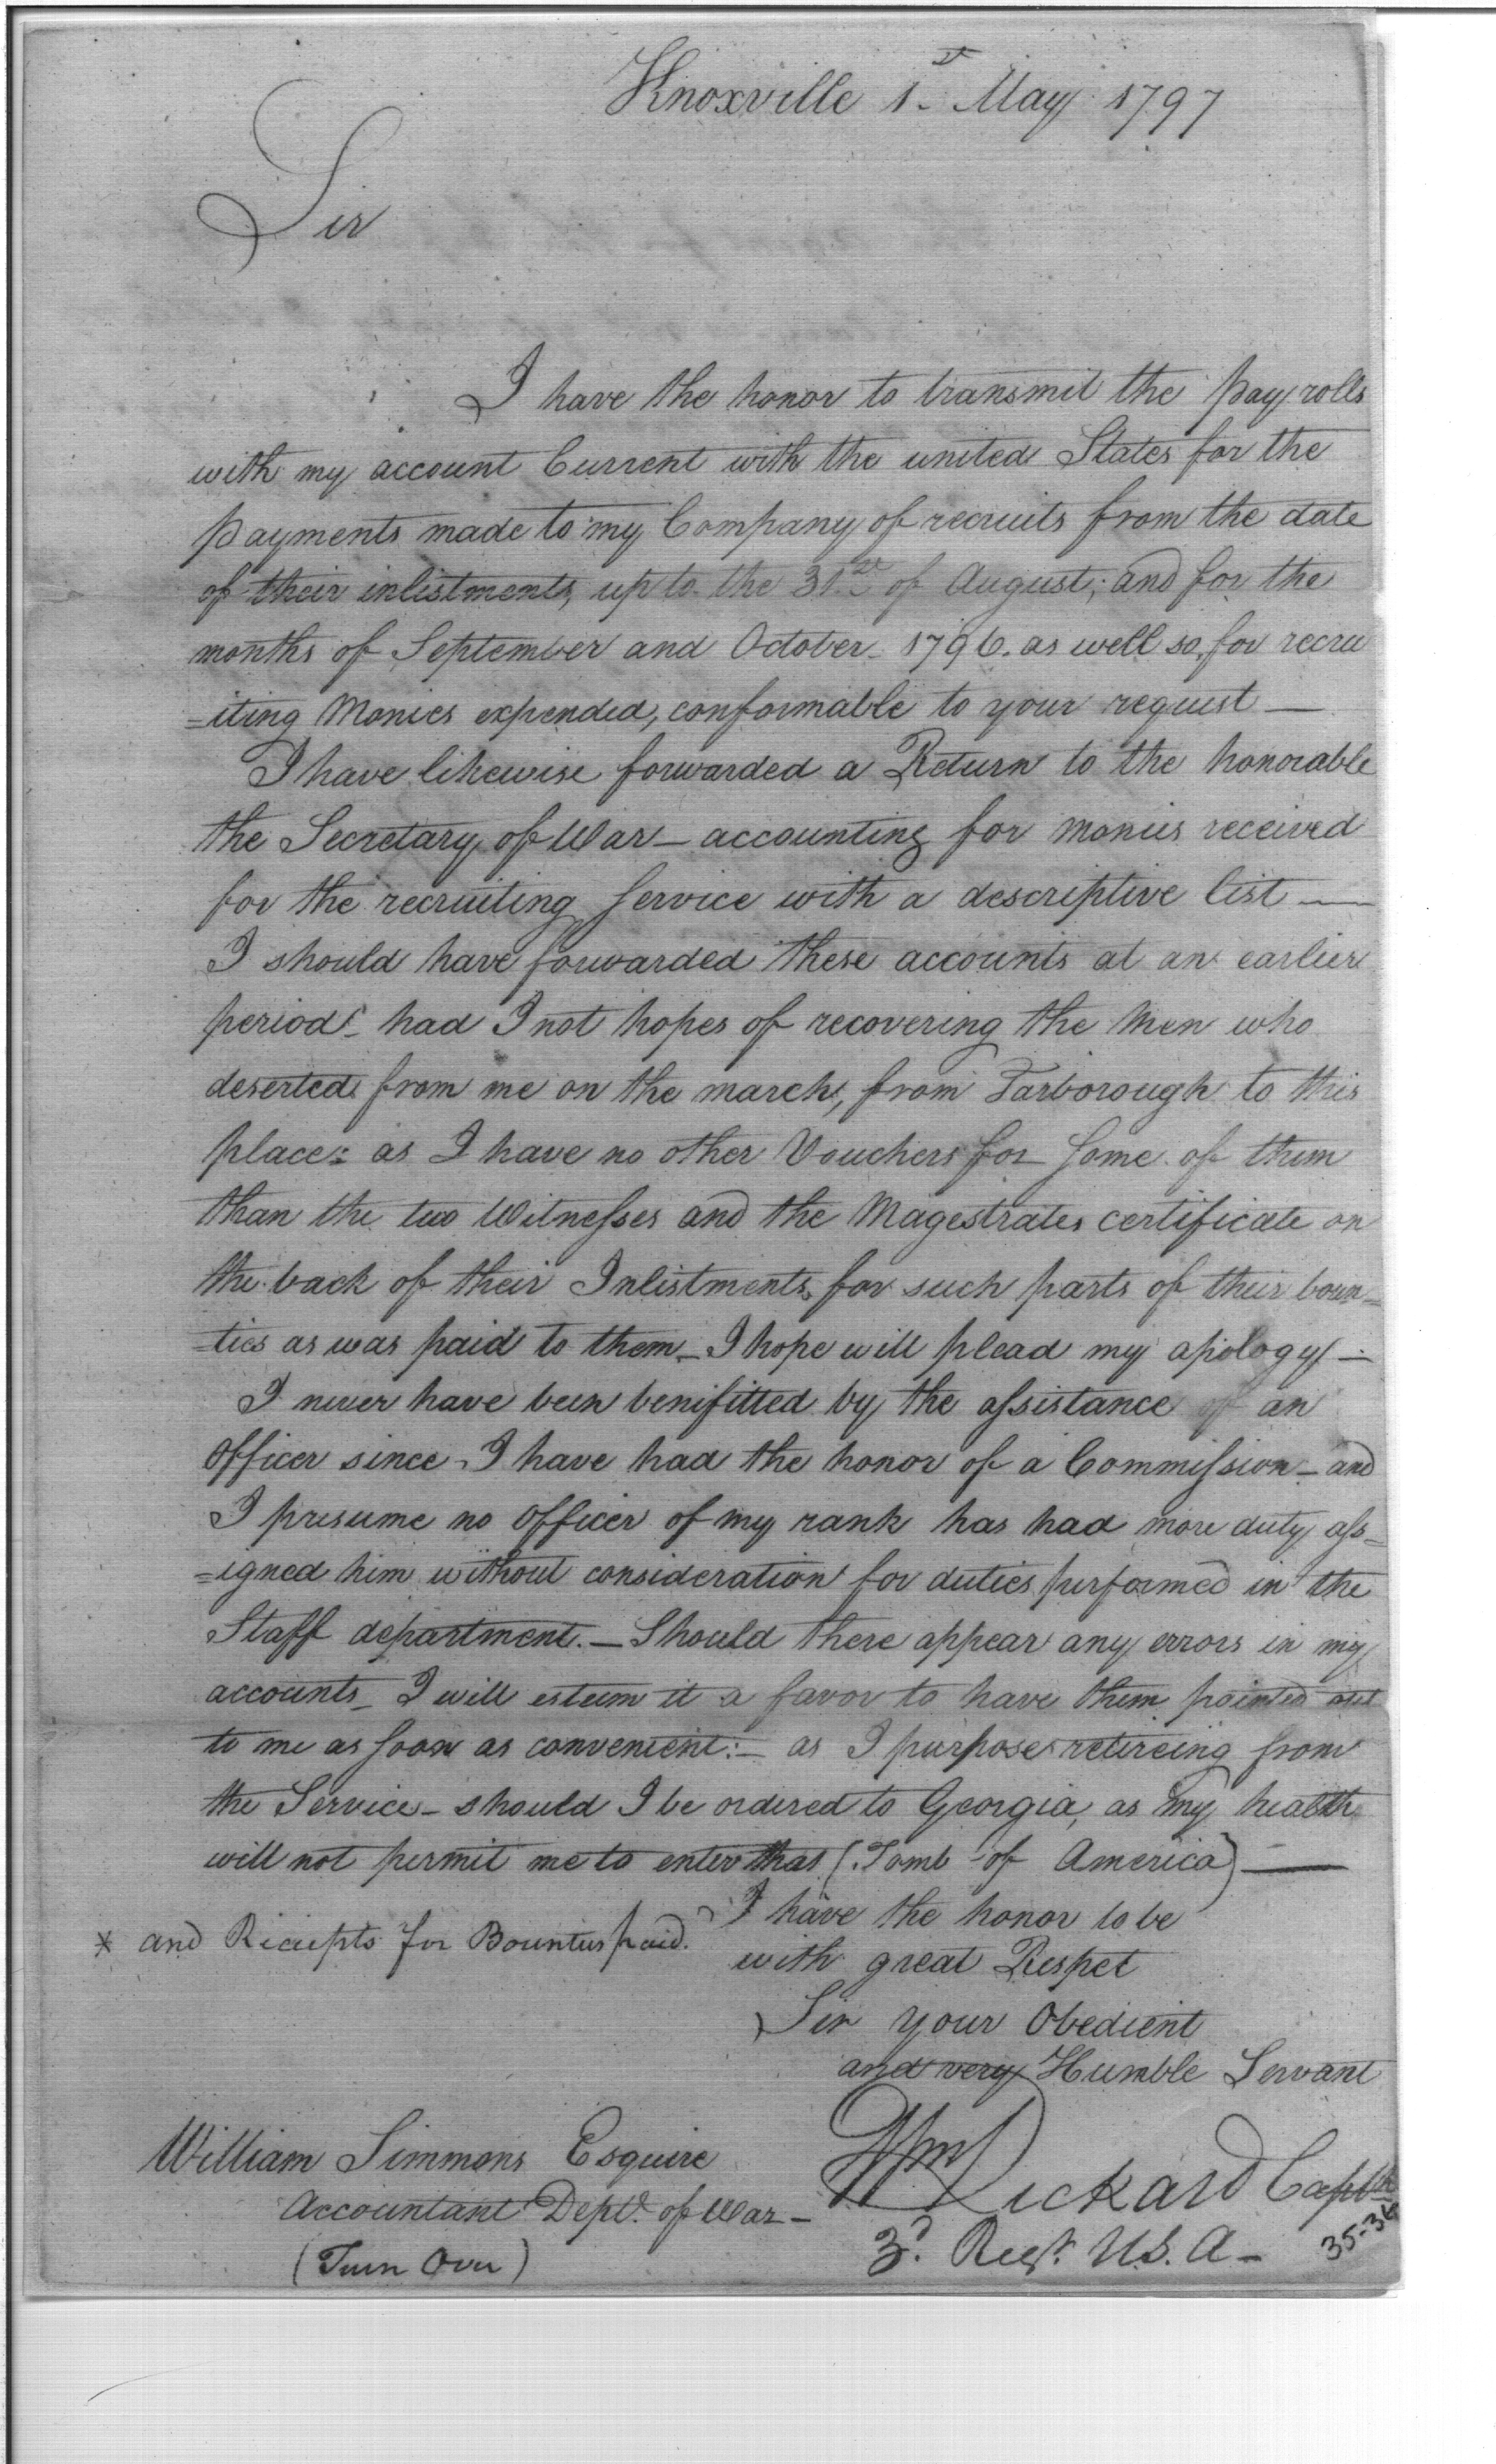 Knoxville 1st May 1797
Sir
I have the honor to transmit the pay rolls
with my account Current with the united States for the
payments made to my Company of recruits from the date
of their inlistments, up to the 31st of August; and for the
months of September and October 1796. as well so, for recru
=iting Monies expended, conformable to your request —
I have likewise forwarded a Return to the honorable
the Secretary of War — accounting for monies received
for the recruiting service with a descriptive list —
I should have forwarded these accounts at an earlier
period — had I not hopes of recovering the Men who
deserted from me on the march, from Tarborough to this
place: as I have no other Vouchers for some of them
than the two Witnesses and the Magestrates certificate on
the back of their Inlistments, for such parts of their boun=
=ties as was paid to them — I hope will plead my apology —
I never have been benifitted by the assistance of an
officer since I have had the honor of a Commission — and
I presume no officer of my rank has had more duty ass=
=igned him without consideration for duties performed in the
Staff department. — Should there appear any errors in my
accounts — I will esteem it a favor to have them pointed out
to me as soon as convenient: — as I purpose retireing from
the Service — should I be ordered to Georgia, as my health
will not permit me to enter that (Tomb of America) —
I have the honor to be
* and Reciepts for Bounties paid.
with great Respet
Sir your Obedient
and very Humble Servant
Wm Rickard Captn
3d. Regt. U.S.A —
William Simmons Esquire
Accountant Dept. of War —
(Turn Over)
35-36